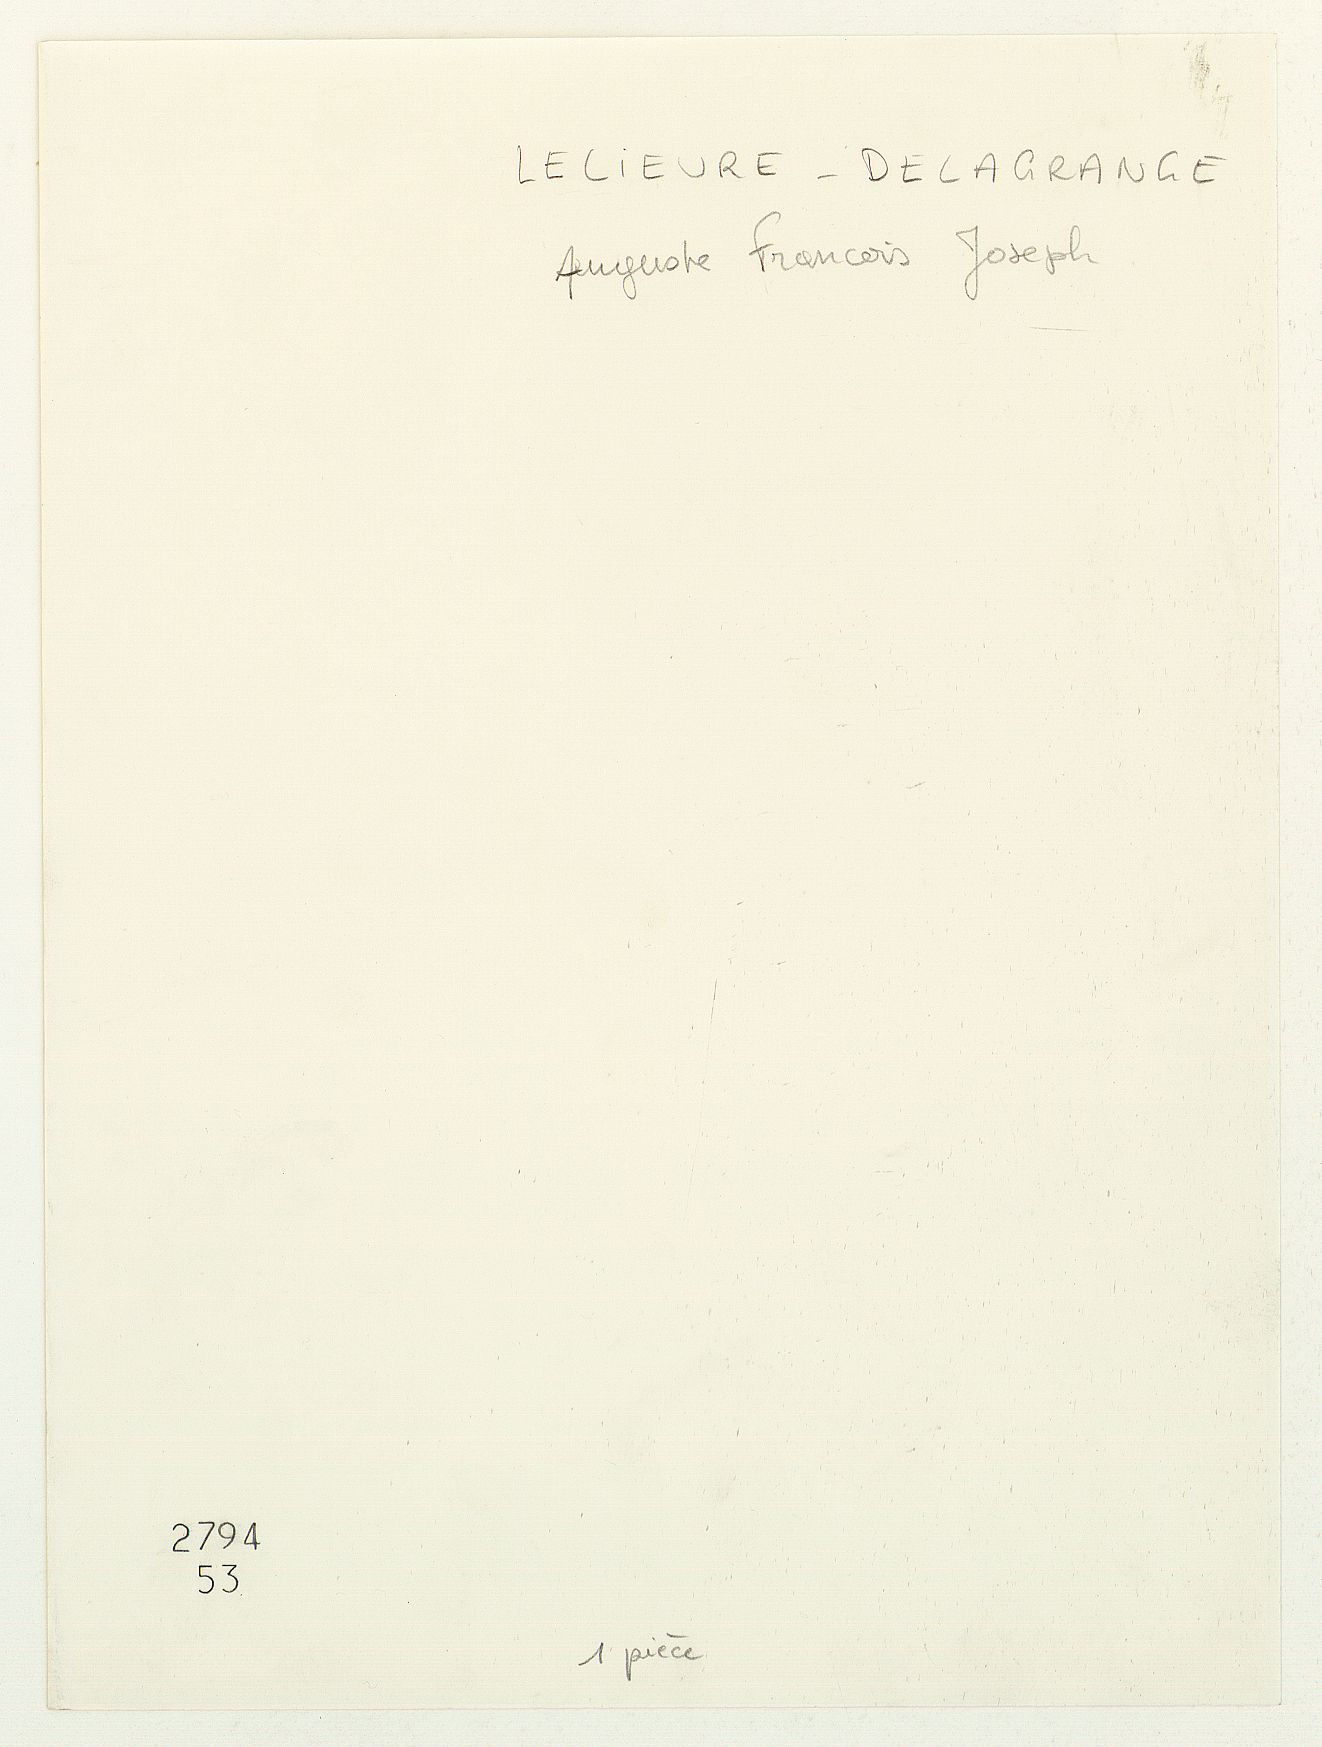 LELiEVRE - DELAGRANGE
Auguste Francois Joseph
2794
53
1 pièce